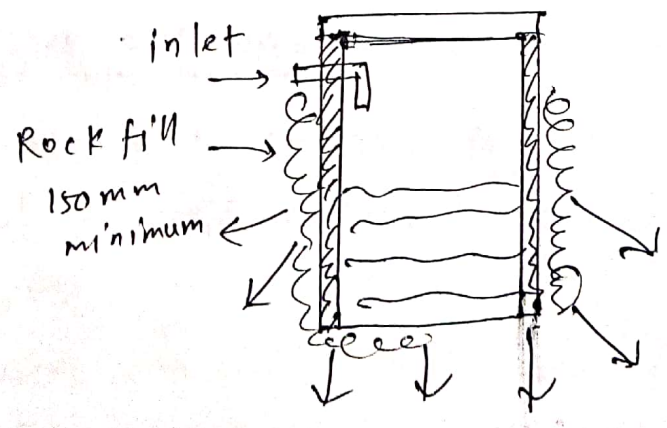 inlet
Rock fill
150 mm
minimum